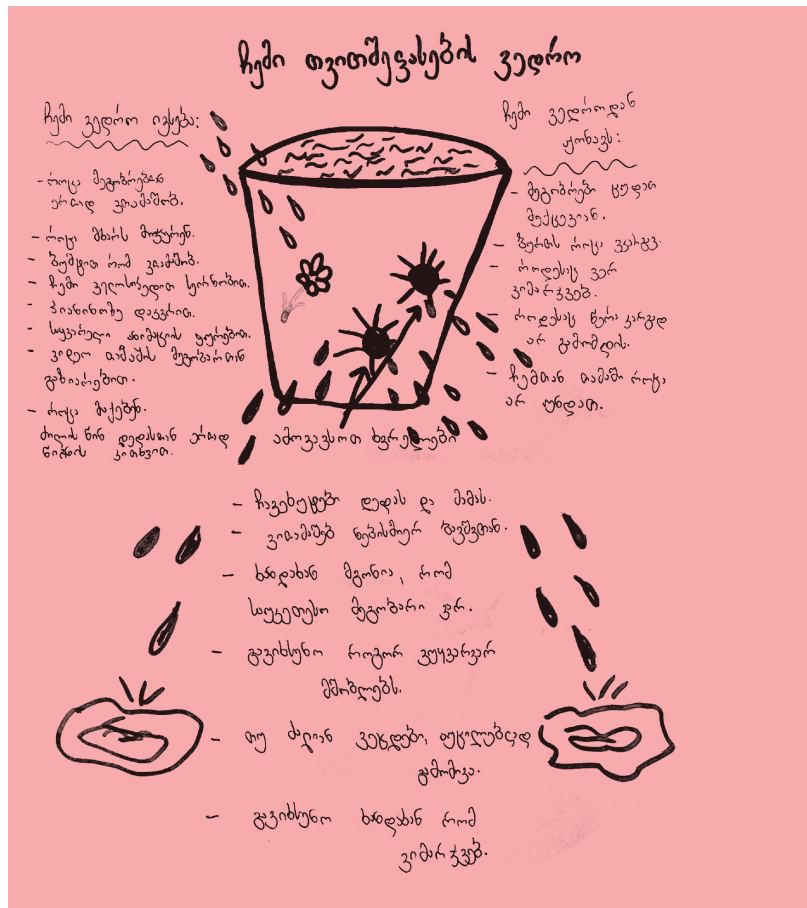 ჩემი თვითშეფასების ვედრო
ჩემი ვედრო ივსება:
- როცა მეგობრებთან
ერთად ვთამაშობ.
- როცა მხარს მიჭერენ.
- ბუშტით რომ ვთამაშობ.
- ჩემი ველოსიპედით სეირნობით.
- პიანინოზე დაკვრით.
- საყვარელი ანიმაციის ყურებით.
- ვიდეო თამაშის მეგობართან
გაზიარებით.
- როცა მაქებენ.
ძილის წინ დედასთან ერთად
წიგნის კითხვით.
ჩემი ვედროდან
ჟონავს:
- მეგობრები ცუდათ
მექცევიან.
- ბურთს როცა ვკარგავ.
- როდესაც ვერ
ვიმარჯვებ.
- როდესაც წერა კარგად
არ გამომდის.
- ჩემთან თამაში როცა
არ უნდათ.
ამოვავსოთ ხვრელები
- ჩავეხუტები დედას და მამას.
- ვითამაშებ ნებისმიერ ბავშვთან.
- ხანდახან მგონია, რომ
საუკეთესო მეგობარი ვარ.
- გავიხსენო როგორ ვუყვარვარ
მშობლებს.
- თუ ძალიან ვეცდები, აუცილებლად
გამომივა.
- გავიხსენო ხანდახან რომ
ვიმარჯვებ.